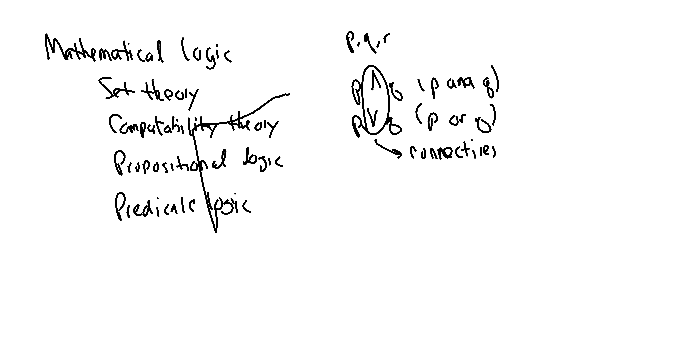 Mathematical logic
Set theory
Computability theory
Propositional logic
Predicate logic
p, q, r
p ∧ q (p and q)
p ∨ q (p or q)
connectives